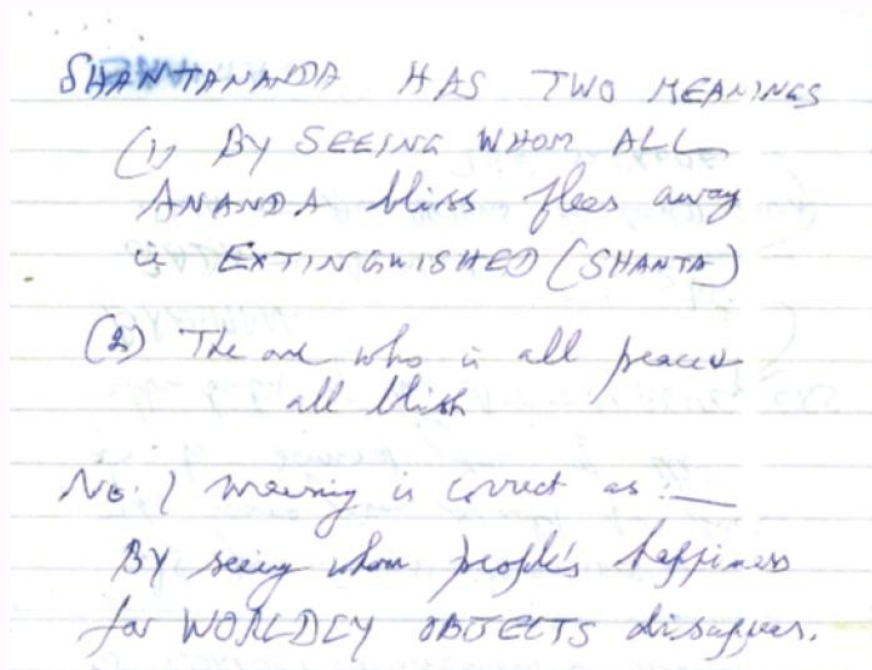 SHANTANANDA HAS TWO MEANINGS
(1) BY SEEING WHOM ALL
ANANDA bliss flees away
is EXTINGUISHED (SHANTA)
(2) The one who is all peace &
all bliss
No. 1 meaning is correct as :—
BY seeing whom people's happiness
for WORLDLY OBJECTS disappears.